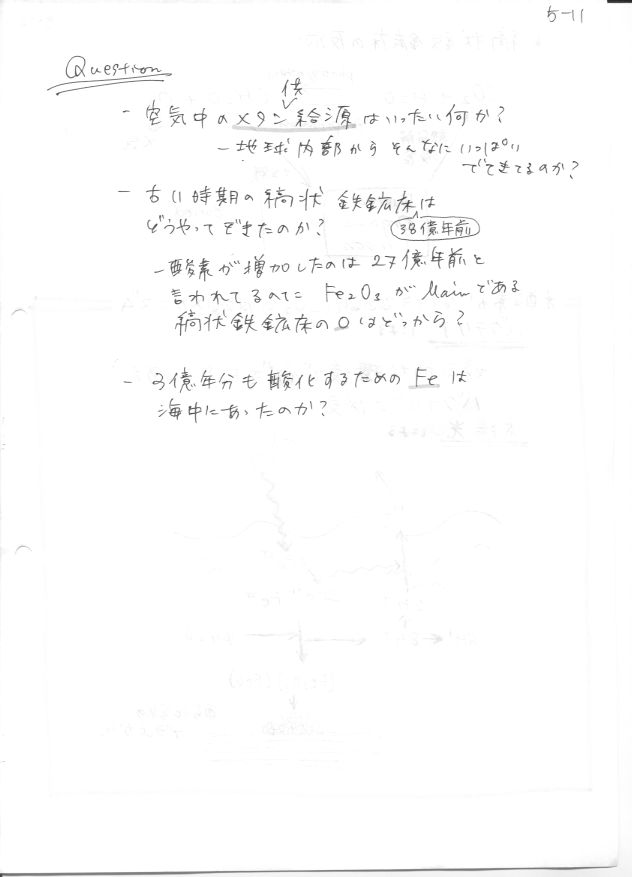 5-11
Question
- 空気中のメタン供給源はいったい何か?
- 地球内部からそんなにいっぱい
でてきてるのか?
- 古い時期の縞状鉄鉱床は
38億年前
どうやってできたのか?
- 酸素が増加したのは27億年前と
言われてるのに Fe₂O₃がMainである
縞状鉄鉱床のOはどっから?
- 3億年分も酸化するためのFeは
海中にあったのか?